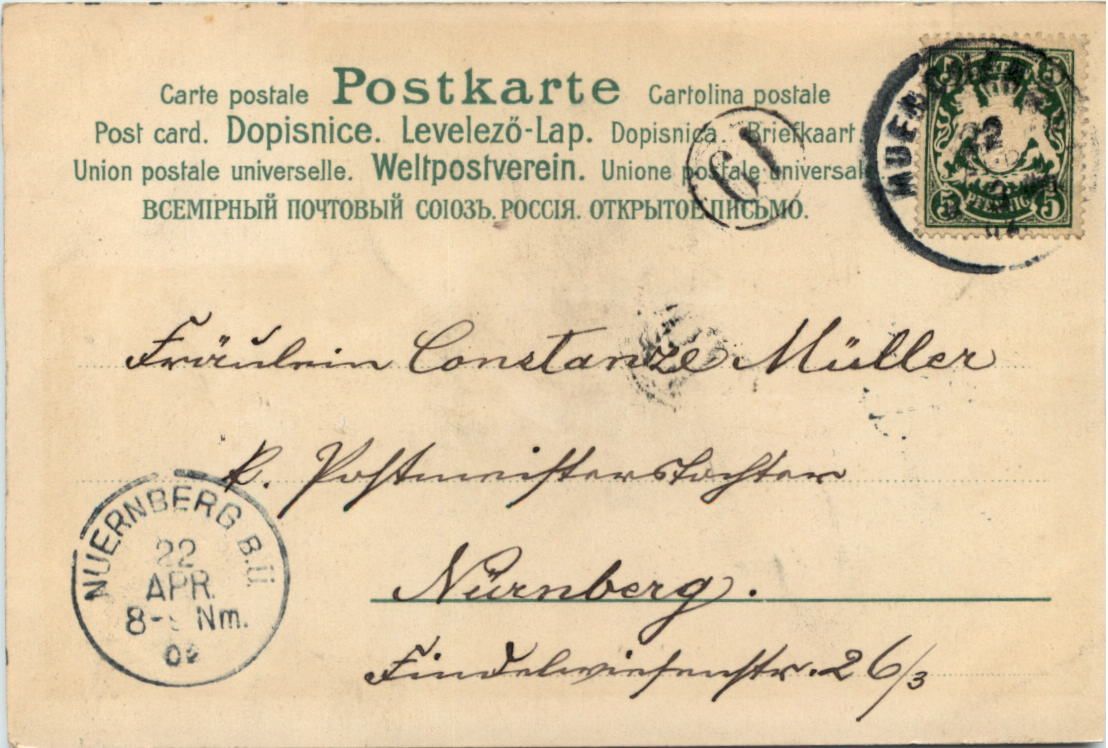 Carte postale Postkarte Cartolina postale
Post card. Dopisnice. Levelező-Lap. Dopisnica. Briefkaart
Union postale universelle. Weltpostverein. Unione postale universal
ВСЕМІРНЫЙ ПОЧТОВЫЙ СОЮЗЪ. РОССІЯ. ОТКРЫТОЕ ПИСЬМО.
19
5 5
22
5 PFENNIG 5
Fräulein Constanze Müller
k. Postmeisterstochter
Nürnberg.
Findelwiesenstr. 26/3
NUERNBERG B.Ü.
22
APR.
8- Nm.
02